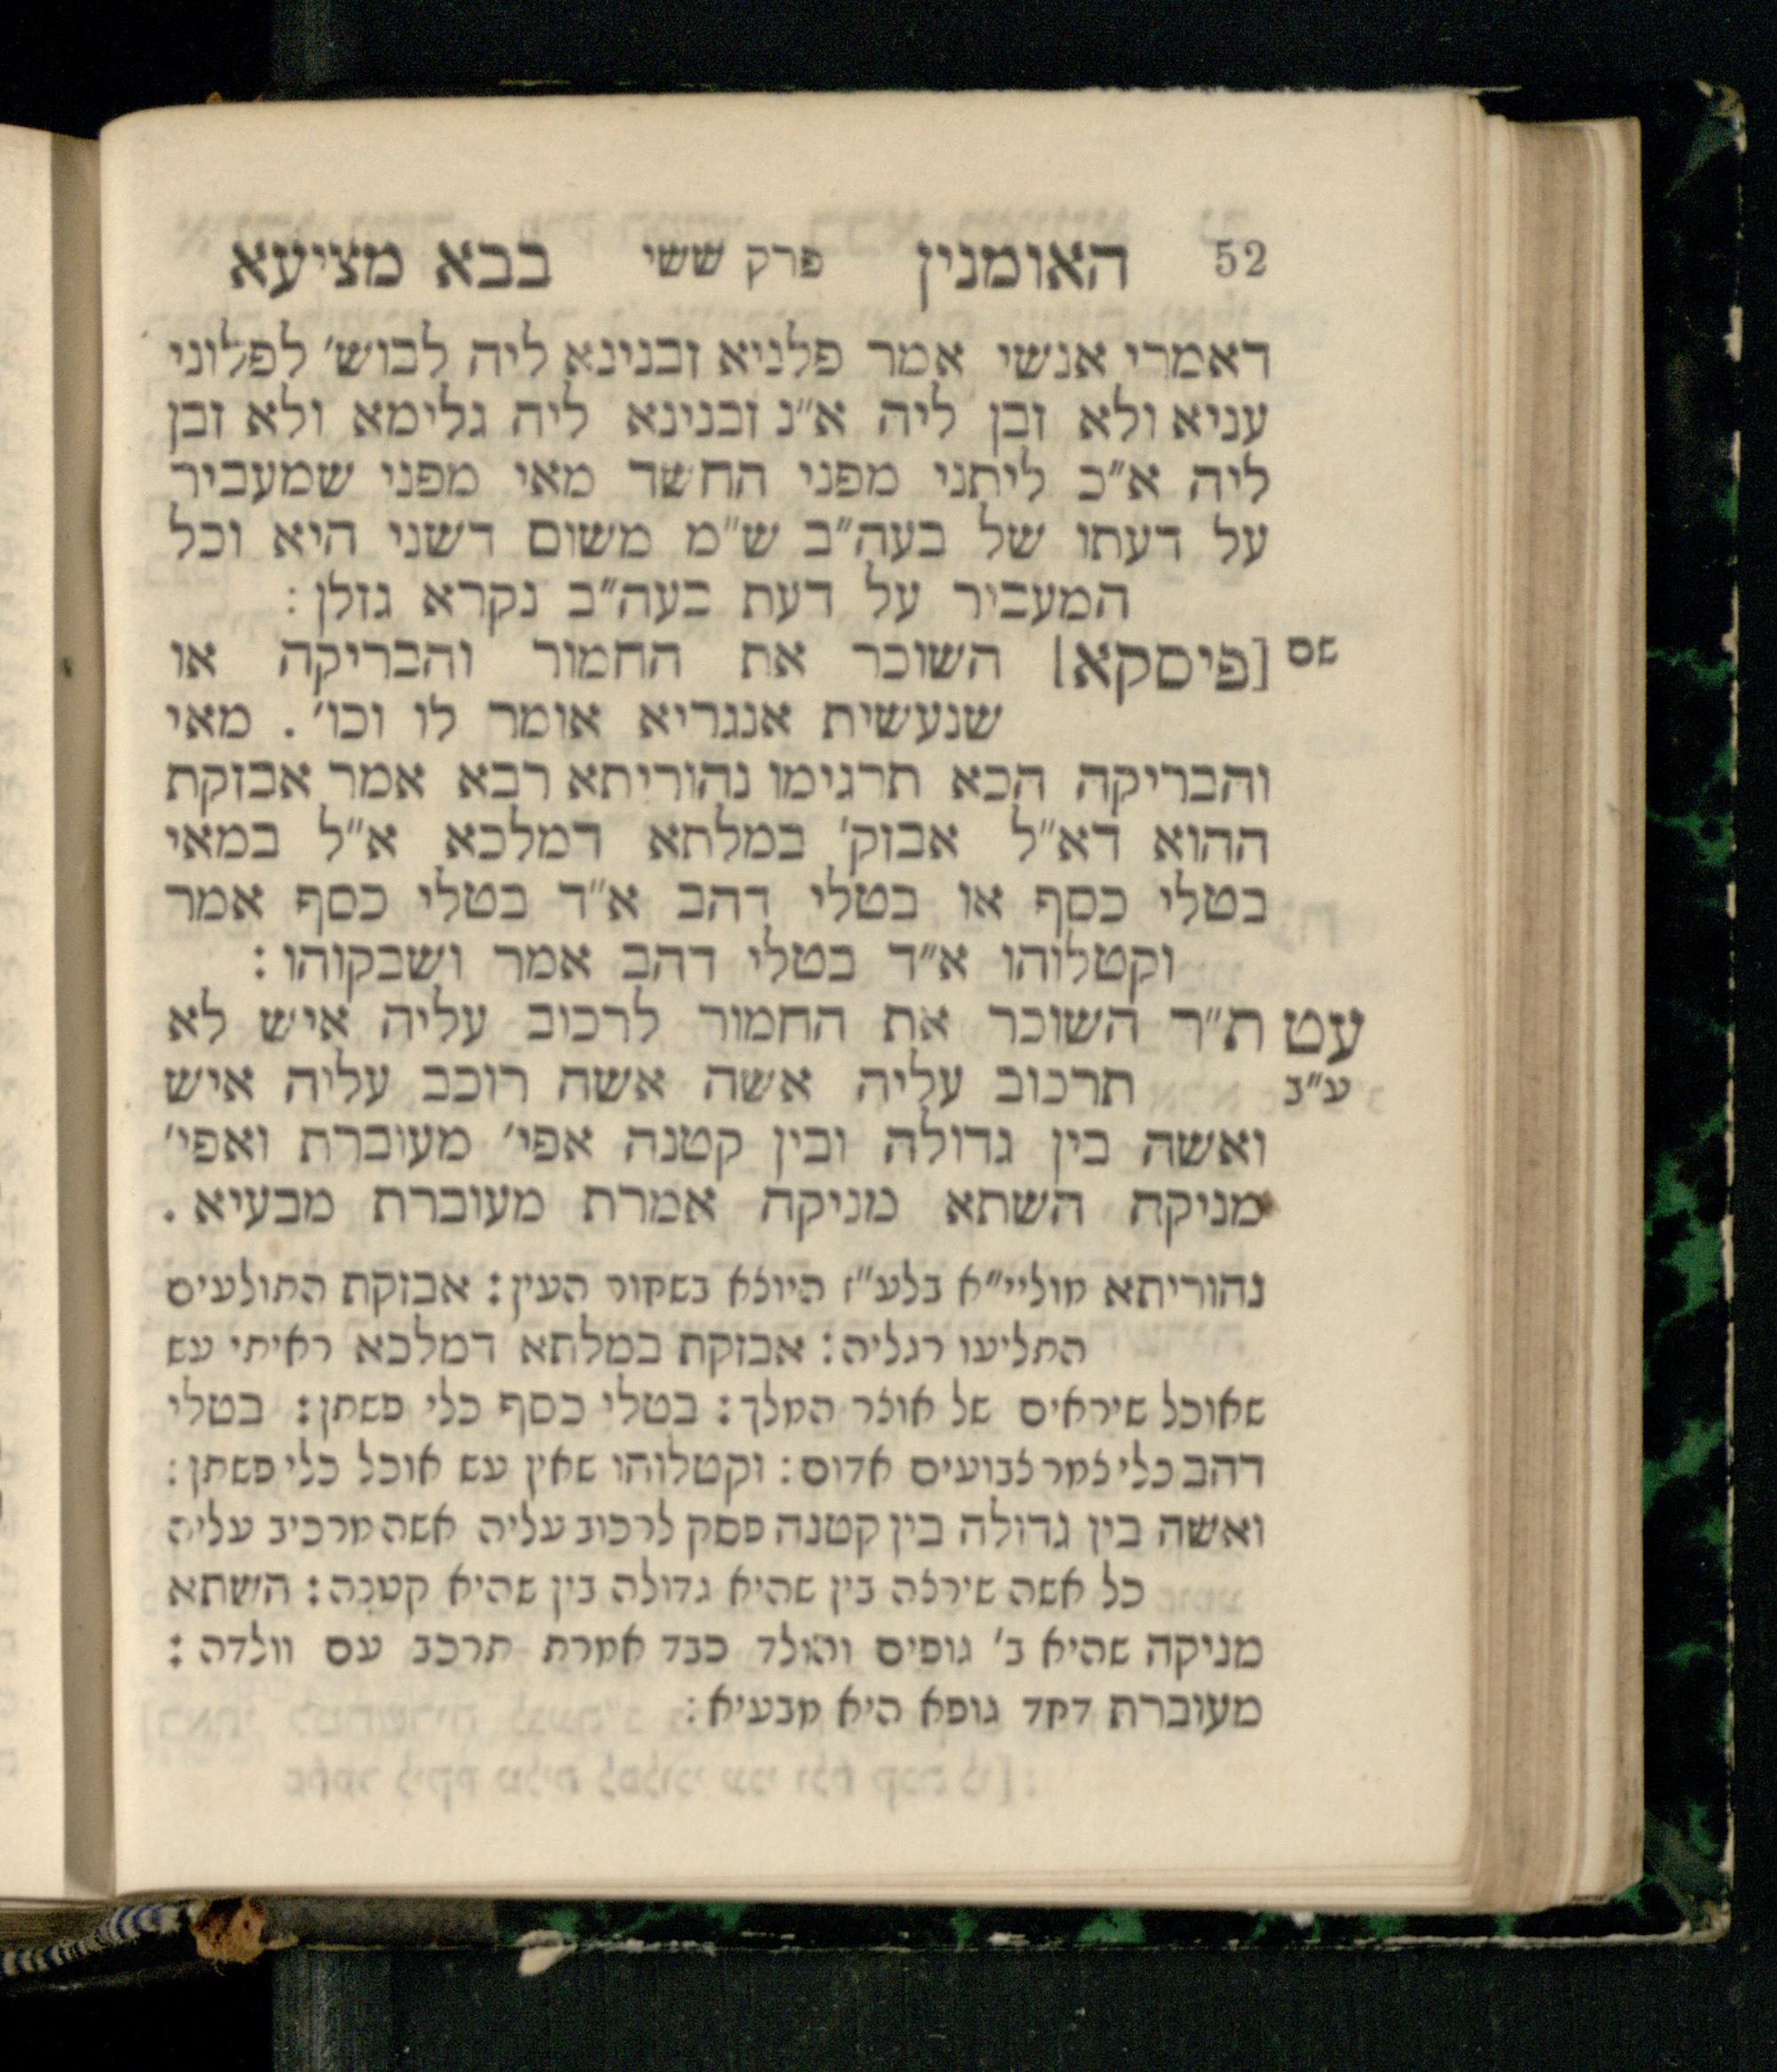 52 האומנין פרק ששי בבא מציעא
דאמרי אנשי אמר פלניא זבנינא ליה לבוש׳ לפלוני
עניא ולא זבן ליה א״נ זבנינא ליה גלימא ולא זבן
ליה א״כ ליתני מפני החשד מאי מפני שמעביר
על דעתו של בעה״ב ש״מ משום דשני היא וכל
המעביר על דעת בעה״ב נקרא גזלן :
שם [פיסקא] השוכר את החמור והבריקה או
שנעשית אנגריא אומר לו וכו׳ . מאי
והבריקה הכא תרגימו נהוריתא רבא אמר אבזקת
ההוא דא״ל אבזק׳ במלתא דמלכא א״ל במאי
בטלי כסף או בטלי דהב א״ד בטלי כסף אמר
וקטלוהו א״ד בטלי דהב אמר ושבקוהו :
עט ת״ר השוכר את החמור לרכוב עליה איש לא
ע״ב תרכוב עליה אשה אשה רוכב עליה איש
ואשה בין גדולה ובין קטנה אפי׳ מעוברת ואפי׳
מניקה השתא מניקה אמרת מעוברת מבעיא .
נהוריתא מוליי״א בלע״ז היוצא בשחור העין : אבזקת התולעים
התליעו רגליה : אבזקת במלתא דמלכא ראיתי עש
שאוכל שיראים של אוצר המלך : בטלי כסף כלי פשתן : בטלי
דהב כלי צמר צבועים אדום : וקטלוהו שאין עש אוכל כלי פשתן :
ואשה בין גדולה בין קטנה פסק לרכוב עליה אשה מרכיב עליה
כל אשה שירצה בין שהיא גדולה בין שהיא קטנה : השתא
מניקה שהיא ב׳ גופים והולד כבד אמרת תרכב עם וולדה :
מעוברת דחד גופא היא מבעיא :